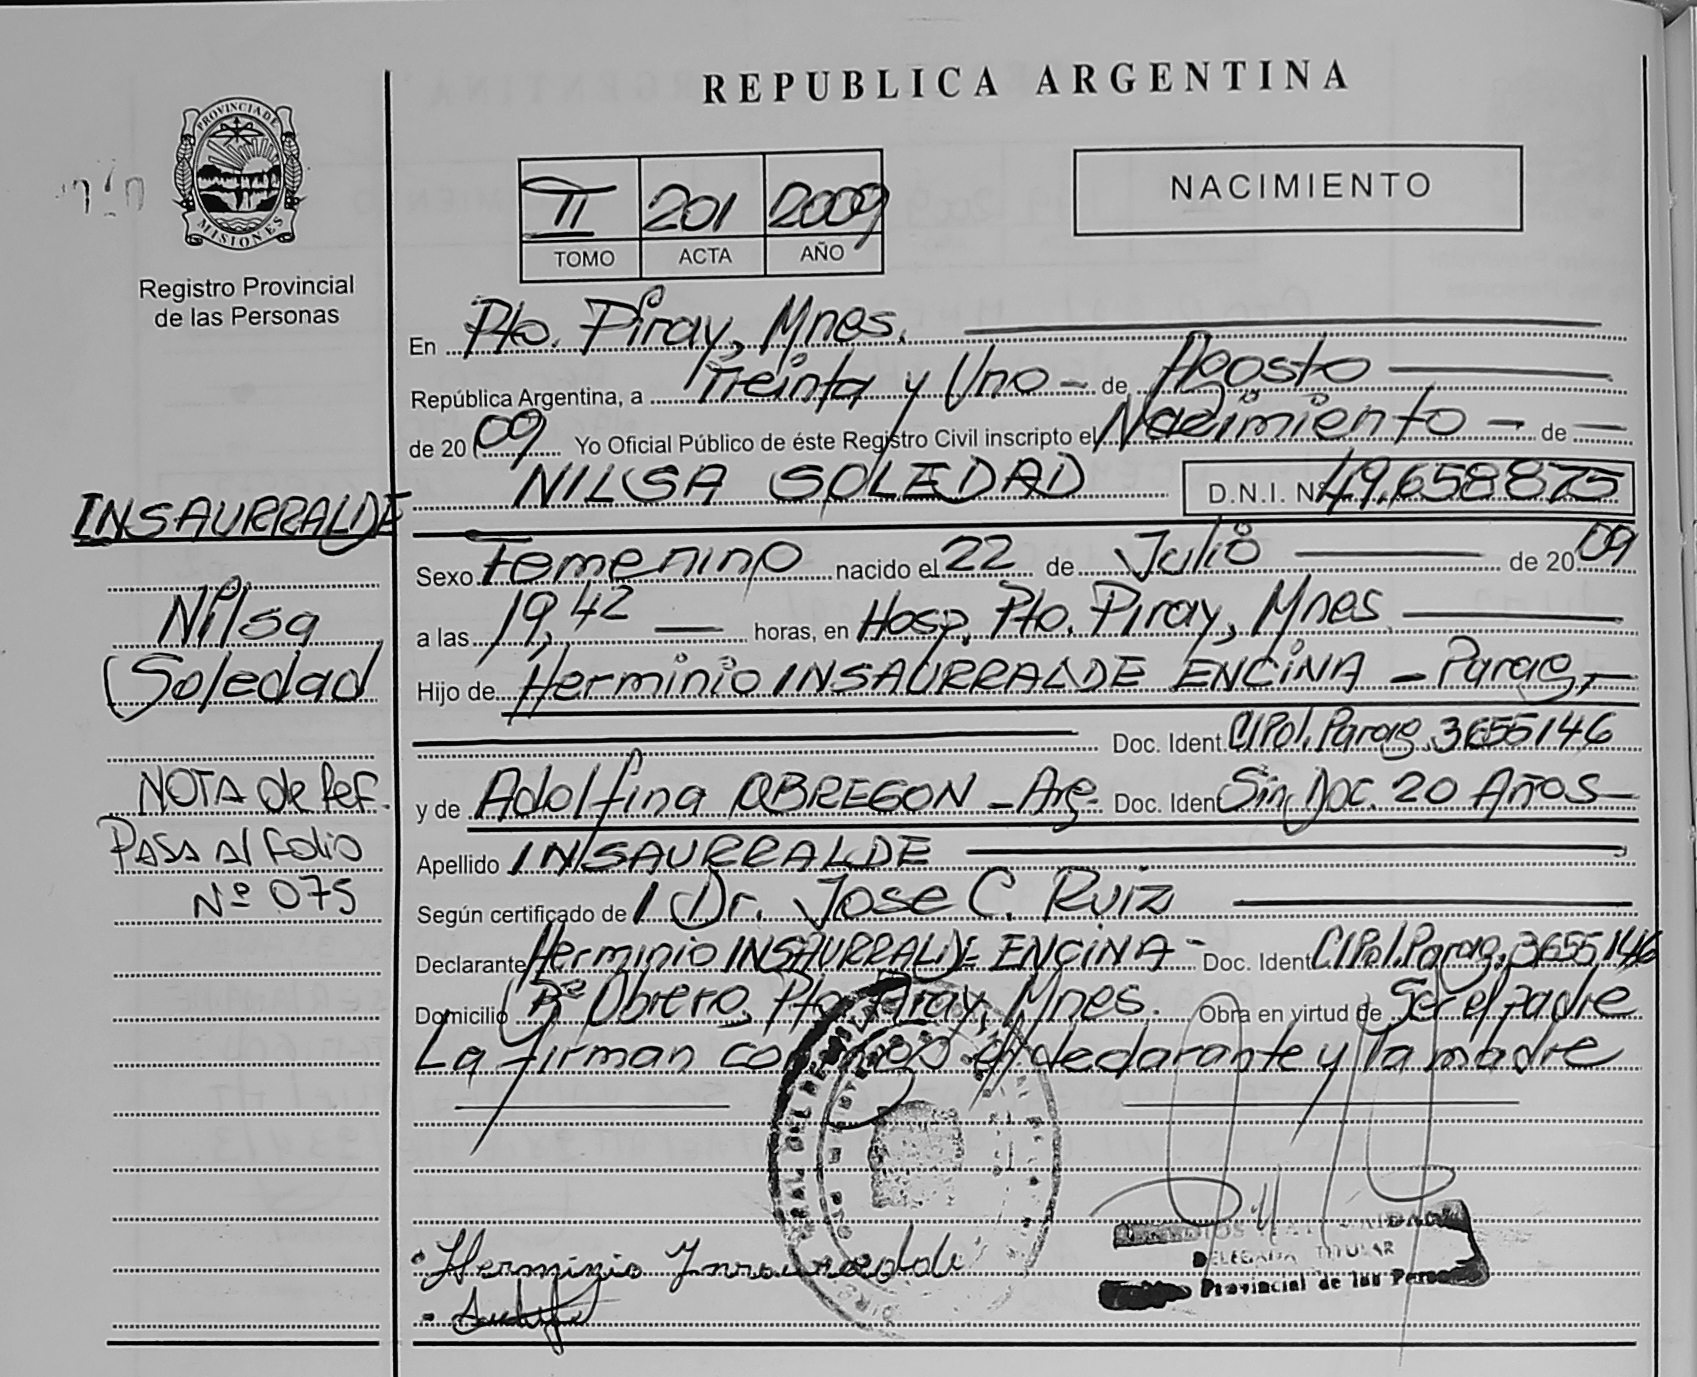 REPUBLICA ARGENTINA
PROVINCIA DE
MISIONES
Registro Provincial
de las Personas
II 201 2009
TOMO ACTA AÑO
NACIMIENTO
En Pto. Piray, Mnes.
República Argentina, a Treinta y Uno - de Agosto
de 2009 Yo Oficial Público de éste Registro Civil inscripto el Nacimiento - de -
NILSA SOLEDAD D.N.I. Nº 49.658875
INSAURRALDE
Nilsa
Soledad
NOTA de Ref.
PASA al Folio
Nº 075
Sexo Femenino nacido el 22 de Julio de 2009
a las 19,42 horas, en Hosp. Pto. Piray, Mnes
Hijo de Herminio INSAURRALDE ENCINA - Parag,-
Doc. Ident. CIPol. Parag. 3655146
y de Adolfina OBREGON - Arg. Doc. Ident Sin Doc. 20 Años
Apellido INSAURRALDE
Según certificado de Dr. Jose C. Ruiz
Declarante Herminio INSAURRALDE ENCINA - Doc. Ident CIPol. Parag. 3655146
Domicilio Bº Obrero, Pto. Piray, Mnes. Obra en virtud de Ser el padre
La firman conmigo el declarante y la madre
Herminio Insaurralde
DELEGADA TITULAR
Provincial de las Perso